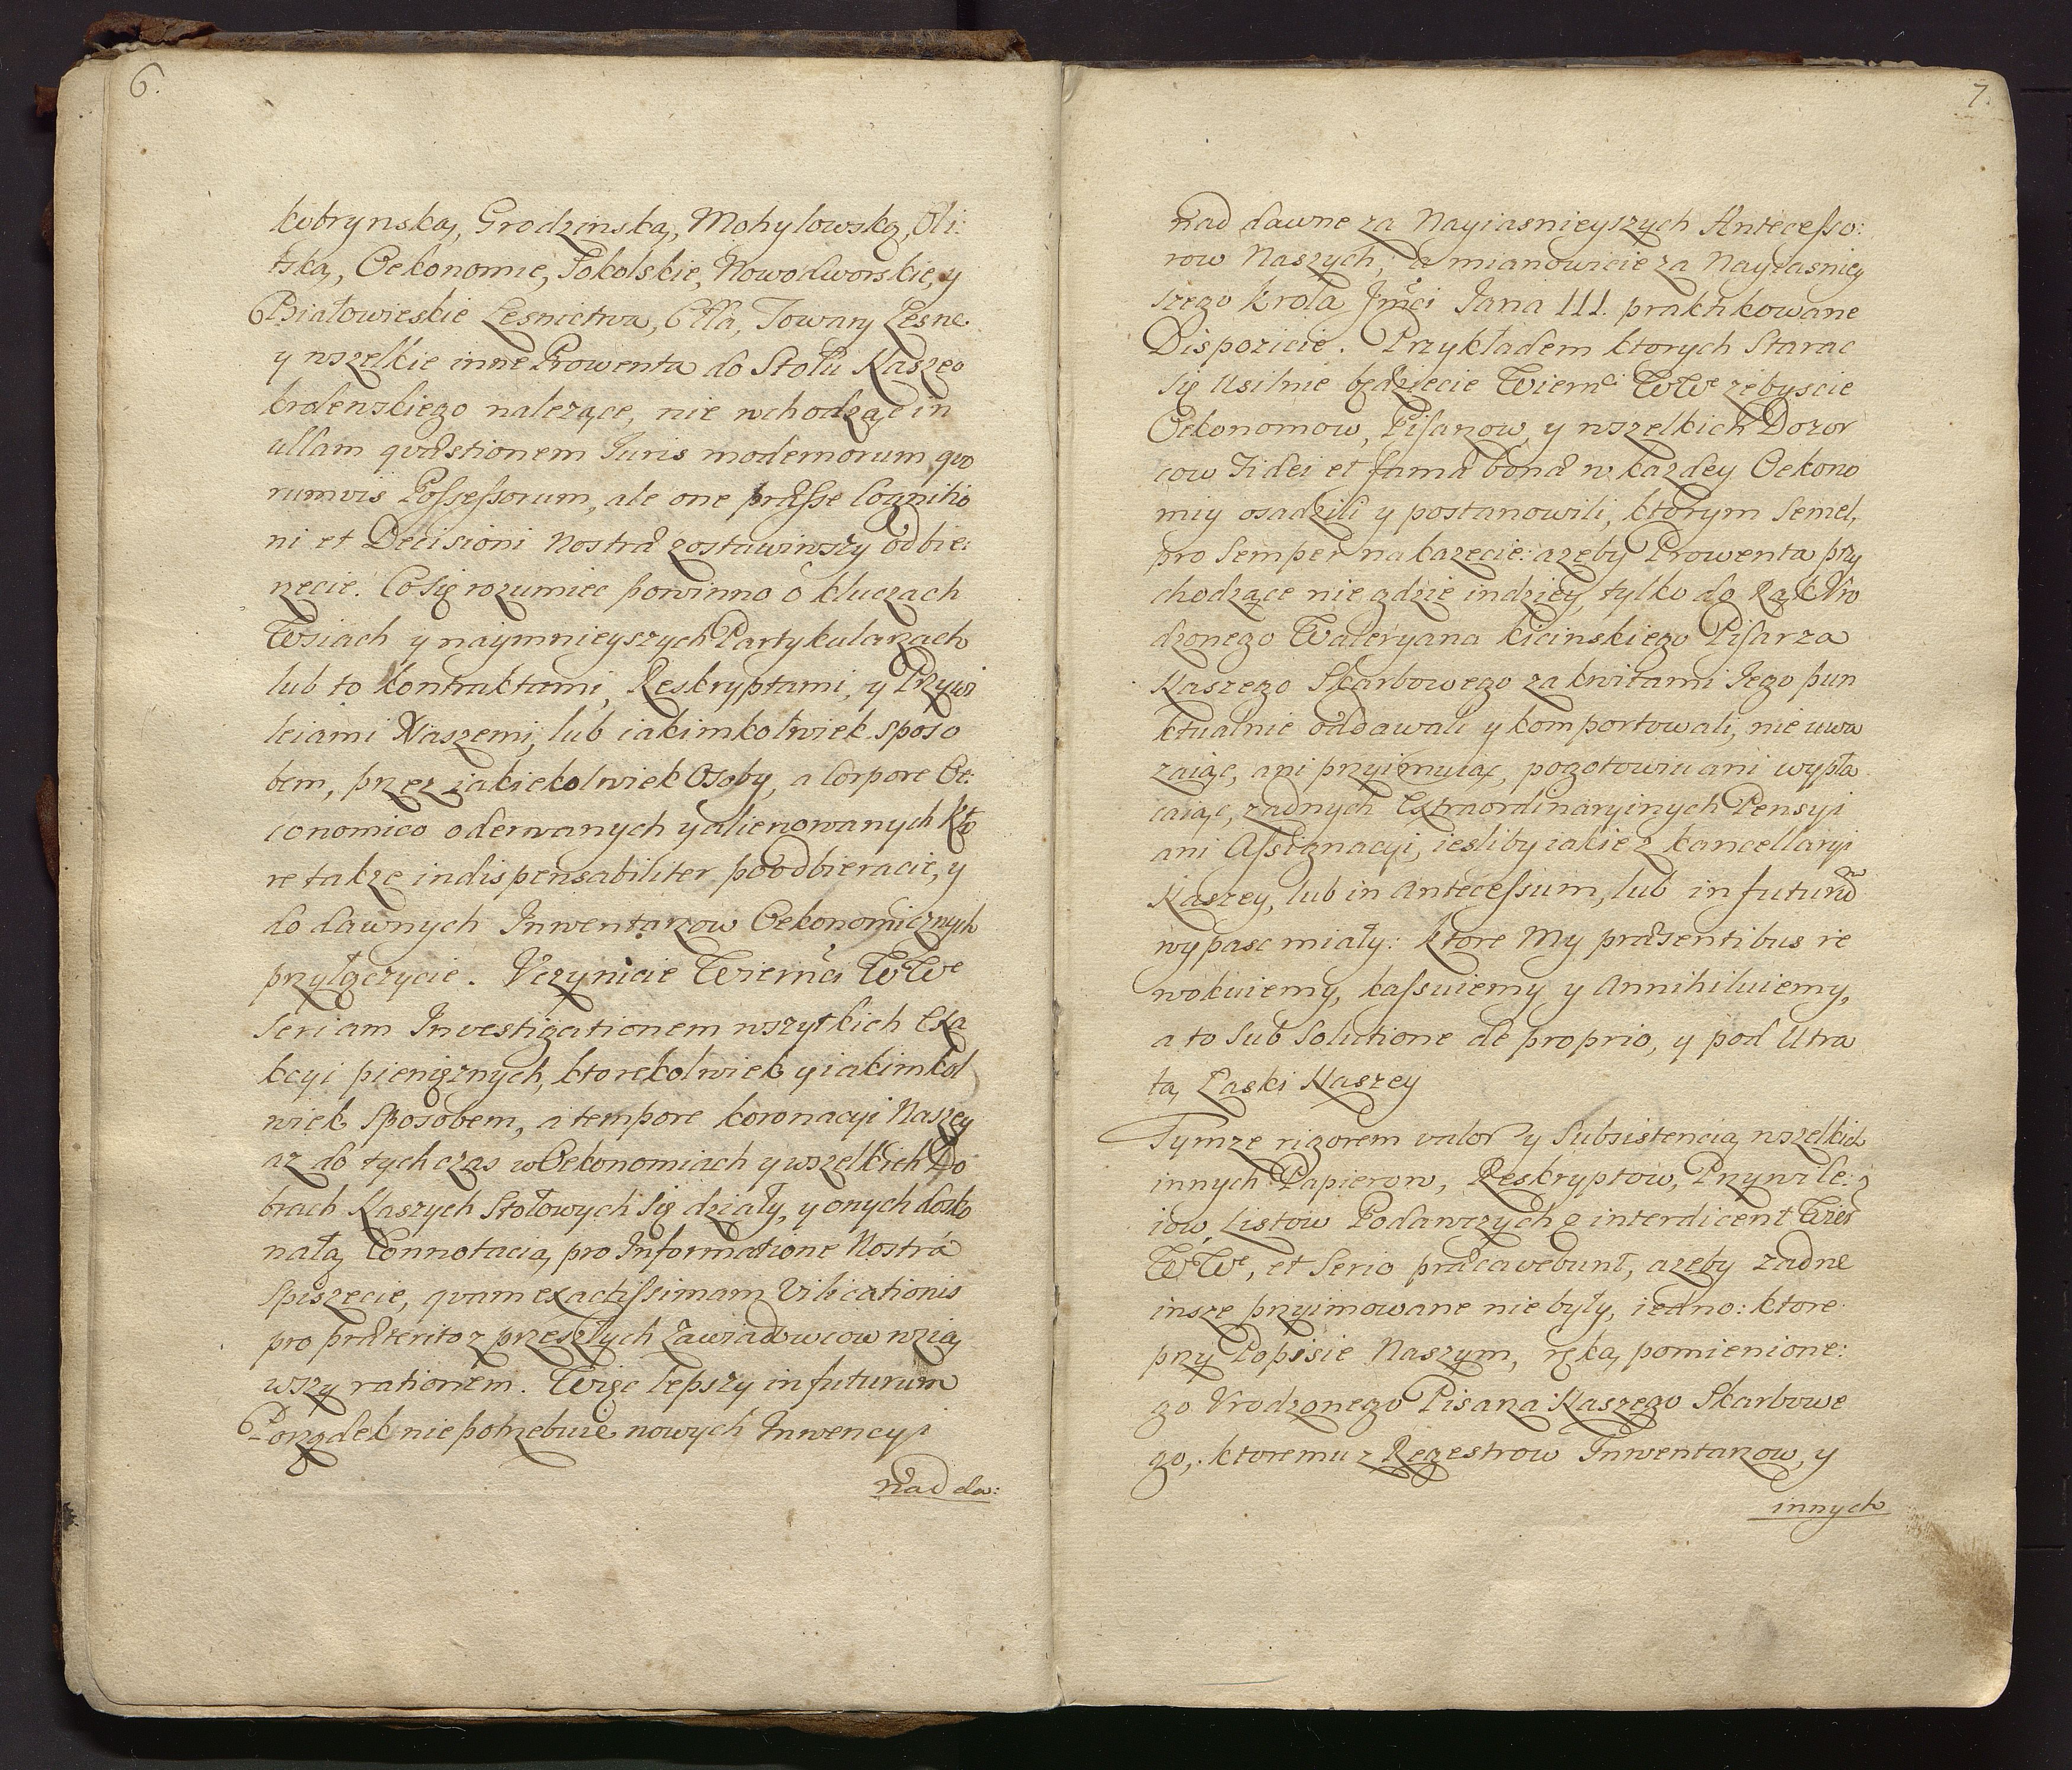 6.
kobrynską, Grodzinską, Mohylowską, Oli:
tską, Oekonomie, Sokolskie, Nowodworskie, y
Białowieskie Lesnictwa, Cła, Towary Lesne
y wszelkie inne Prowenta do Stołu Naszeo
krolewskiego nalezące, nie wchodząc in
ullam quæstionem Iuris modernorum quo
rumvis Possessorum, ale one præsse Cognitio
ni et Decisioni Nostræ zostawiwszy odbie:
rzecie. Co się rozumiec powinno o kluczach
Wsiach y naymnieyszych Partykularzach
lub to kontraktami, Reskryptami, y Przywi
leiami Naszemi, lub iakimkolwiek sposo
bem, przez iakiekolwiek Osoby, a Corpore Oe:
conomico oderwanych y alienowanych Kto
re takze indispensabiliter poodbieracie, y
do dawnych Inwentarzow Oekonomicznych
przyłączycie. Uczynicie Wierñci WWe
Seriam Investigationem wszytkich Exa
kcyi pienięznych, ktorekolwiek y iakimkol
wiek Sposobem, a tempore koronacyi Naszey
az do tych czas w Oekonomiach y wszelkich Do
brach Naszych Stołowych Się działy, y onych dosko
nałą Connotacią pro Informatione Nostrâ
Spiszecie, quam exactissimam Vilicationis
pro præterito z przeszłych Zawiadowcow wzią
wszy rationem. Więc lepszy in futurum
Porządek niepotrzebuie nowych Inwencyi
nad da:
7.
nad dawne za Nayiasnieyszych Antecesso:
row Naszych, a mianowicie za Nayiasniey
szego krola Jmści Iana III. praktikowane
Dispozicie. Przykładem ktorych Starac
Się usilnie będziecie Wiernci WWe zebyscie
Oekonomow, Pisarzow, y wszelkich Dozor
cow Fidei et famæ bonæ w kazdey Oekono
miy osadzili y postanowili, ktorym Semel,
pro Semper nakazecie: azeby Prowenta przy
chodzące nie gdzie indziey, tylko do Rąk Uro
dzonego Waleryana kicinskiego Pisarza
Naszego Skarbowego za kwitami Iego pun
ktualnie oddawali y komportowali, nie uwa
zaiąc, ani przyimuiąc, pogotowiu ani wypła
caiąc, zadnych Extraordinaryinych Pensyi
ani Assignacyi, iesliby iakie z kancellaryi
Naszey, lub in Antecessum, lub in futurũ
wypasc miały: ktore My præsentibus re
wokuiemy, kassuiemy y Annihiluiemy,
a to Sub Solutione de proprio, y pod Utra
tą Łaski Naszey
Tymze rigorem valor y Subsistencią wszelkich
innych Papierow, Reskryptow, Przywile:
iow, Listow Podawczych interdicent Wier
WWe, et Serio præcavebunt, azeby zadne
insze przyimowane nie były, iedno: ktore
przy Popisie Naszym, ręką pomienione:
go Urodzonego Pisarza Naszego Skarbowe
go, ktoremu z Regestrow Inwentarzow, y
innych